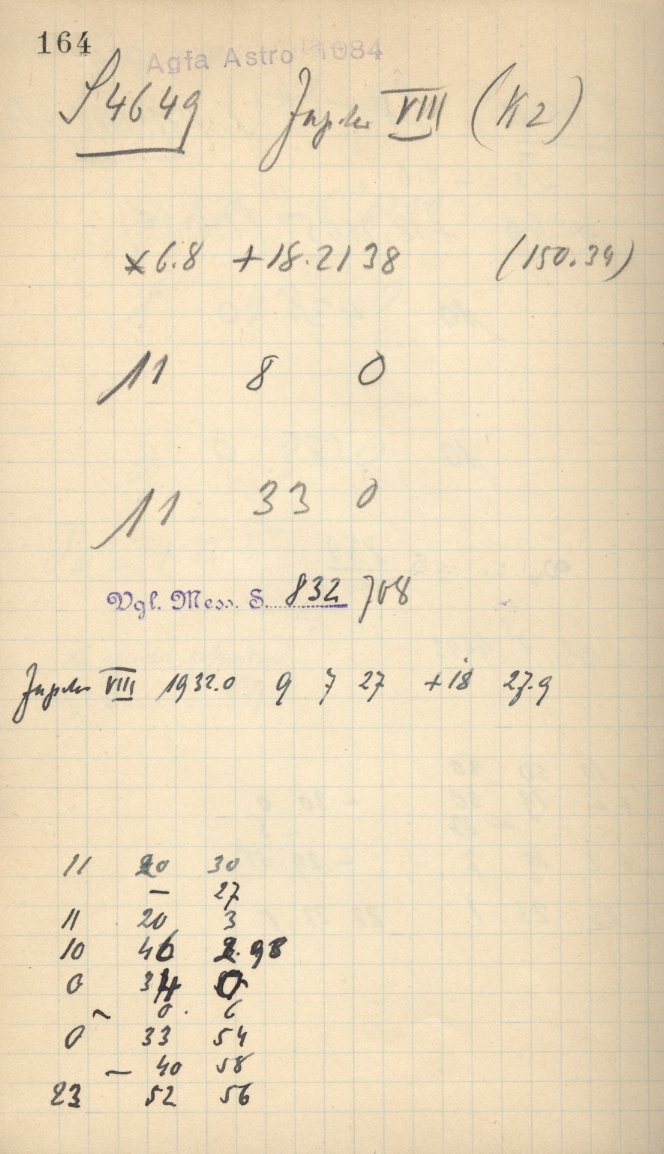 164
Agfa Astro 1084
S 4649 Jupiter VIII (K2)
x 6.8 +18.2138 (150.34)
11 8 0
11 33 0
Vgl. Mess. S. 832 708
Jupiter VIII 1932.0 9 7 27 +18 27.9
11 20 30
— 27
11 20 3
10 46 2.98
0 34 0
~ 0. 6
0 33 54
— 40 58
23 52 56